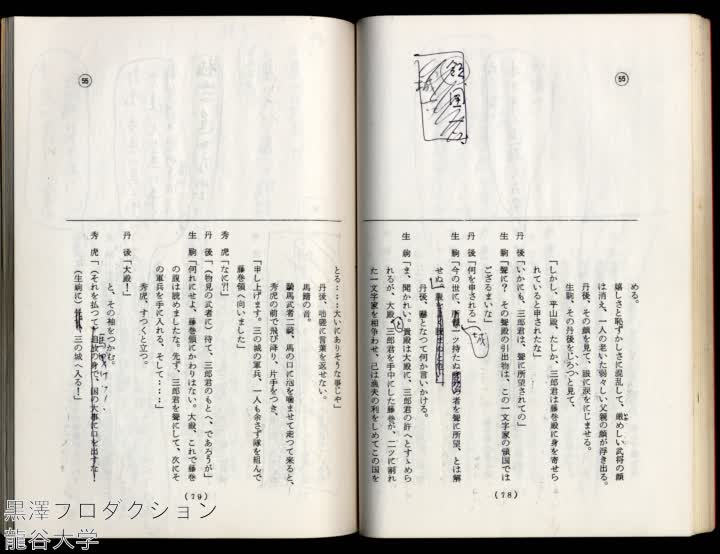 55
める。
嬉しさと恥ずかしさに混乱して、厳めしい武将の顔
は消え、一人の老いた弱々しい父親の顔が浮き出る。
丹後、その顔を見て、眼に涙をにじませる。
生駒、その丹後をじろつと見て、
「しかし、平山殿、たしか、三郎君は藤巻殿に身を寄せら
れていると申されたな」
丹後「いかにも、三郎君は、聟に所望されての」
生駒「聟に？その聟殿の引出物は、この一文字家の領国では
ござるまいな」
丹後「何を申される」
生駒「今の世に、所領一ツ持たぬ者を聟に所望、とは解
せぬ
丹後、嚇となつて何か言いかける。
生駒「ま、聞かれい。貴殿は大殿に、三郎君の許へとすゝめら
れるが、大殿と三郎君を手中にした藤巻が、二ツに割れ
た一文字家を相争わせ、己は漁夫の利をしめてこの国を
(78)
55
とる……大いにありそうな事じや」
丹後、咄嗟に言葉を返せない。
馬蹄の音。
騎馬武者二騎、馬の口に泡を噛ませて走つて来ると、
秀虎の前で飛び降り、片手をつき、
「申し上げます。三の城の軍兵、一人も余さず隊を組んで
藤巻領へ向いました」
秀虎「なに?!」
丹後「(物見の武者に)待て、三郎君のもとへ、であろうが」
生駒「何れにせよ、藤巻領にかわりはない。大殿、これで藤巻
の腹は読めましたな。先ず、三郎君を聟にして、次にそ
の軍兵を手に入れる、そして……」
秀虎、すつくと立つ。
丹後「大殿！」
と、その袖をつかむ。
秀虎「(それを払つて)追放の身で、国の大事に口を出すな！
(生駒に)三の城へ入る！」
(79)
黒澤プロダクション
龍谷大学